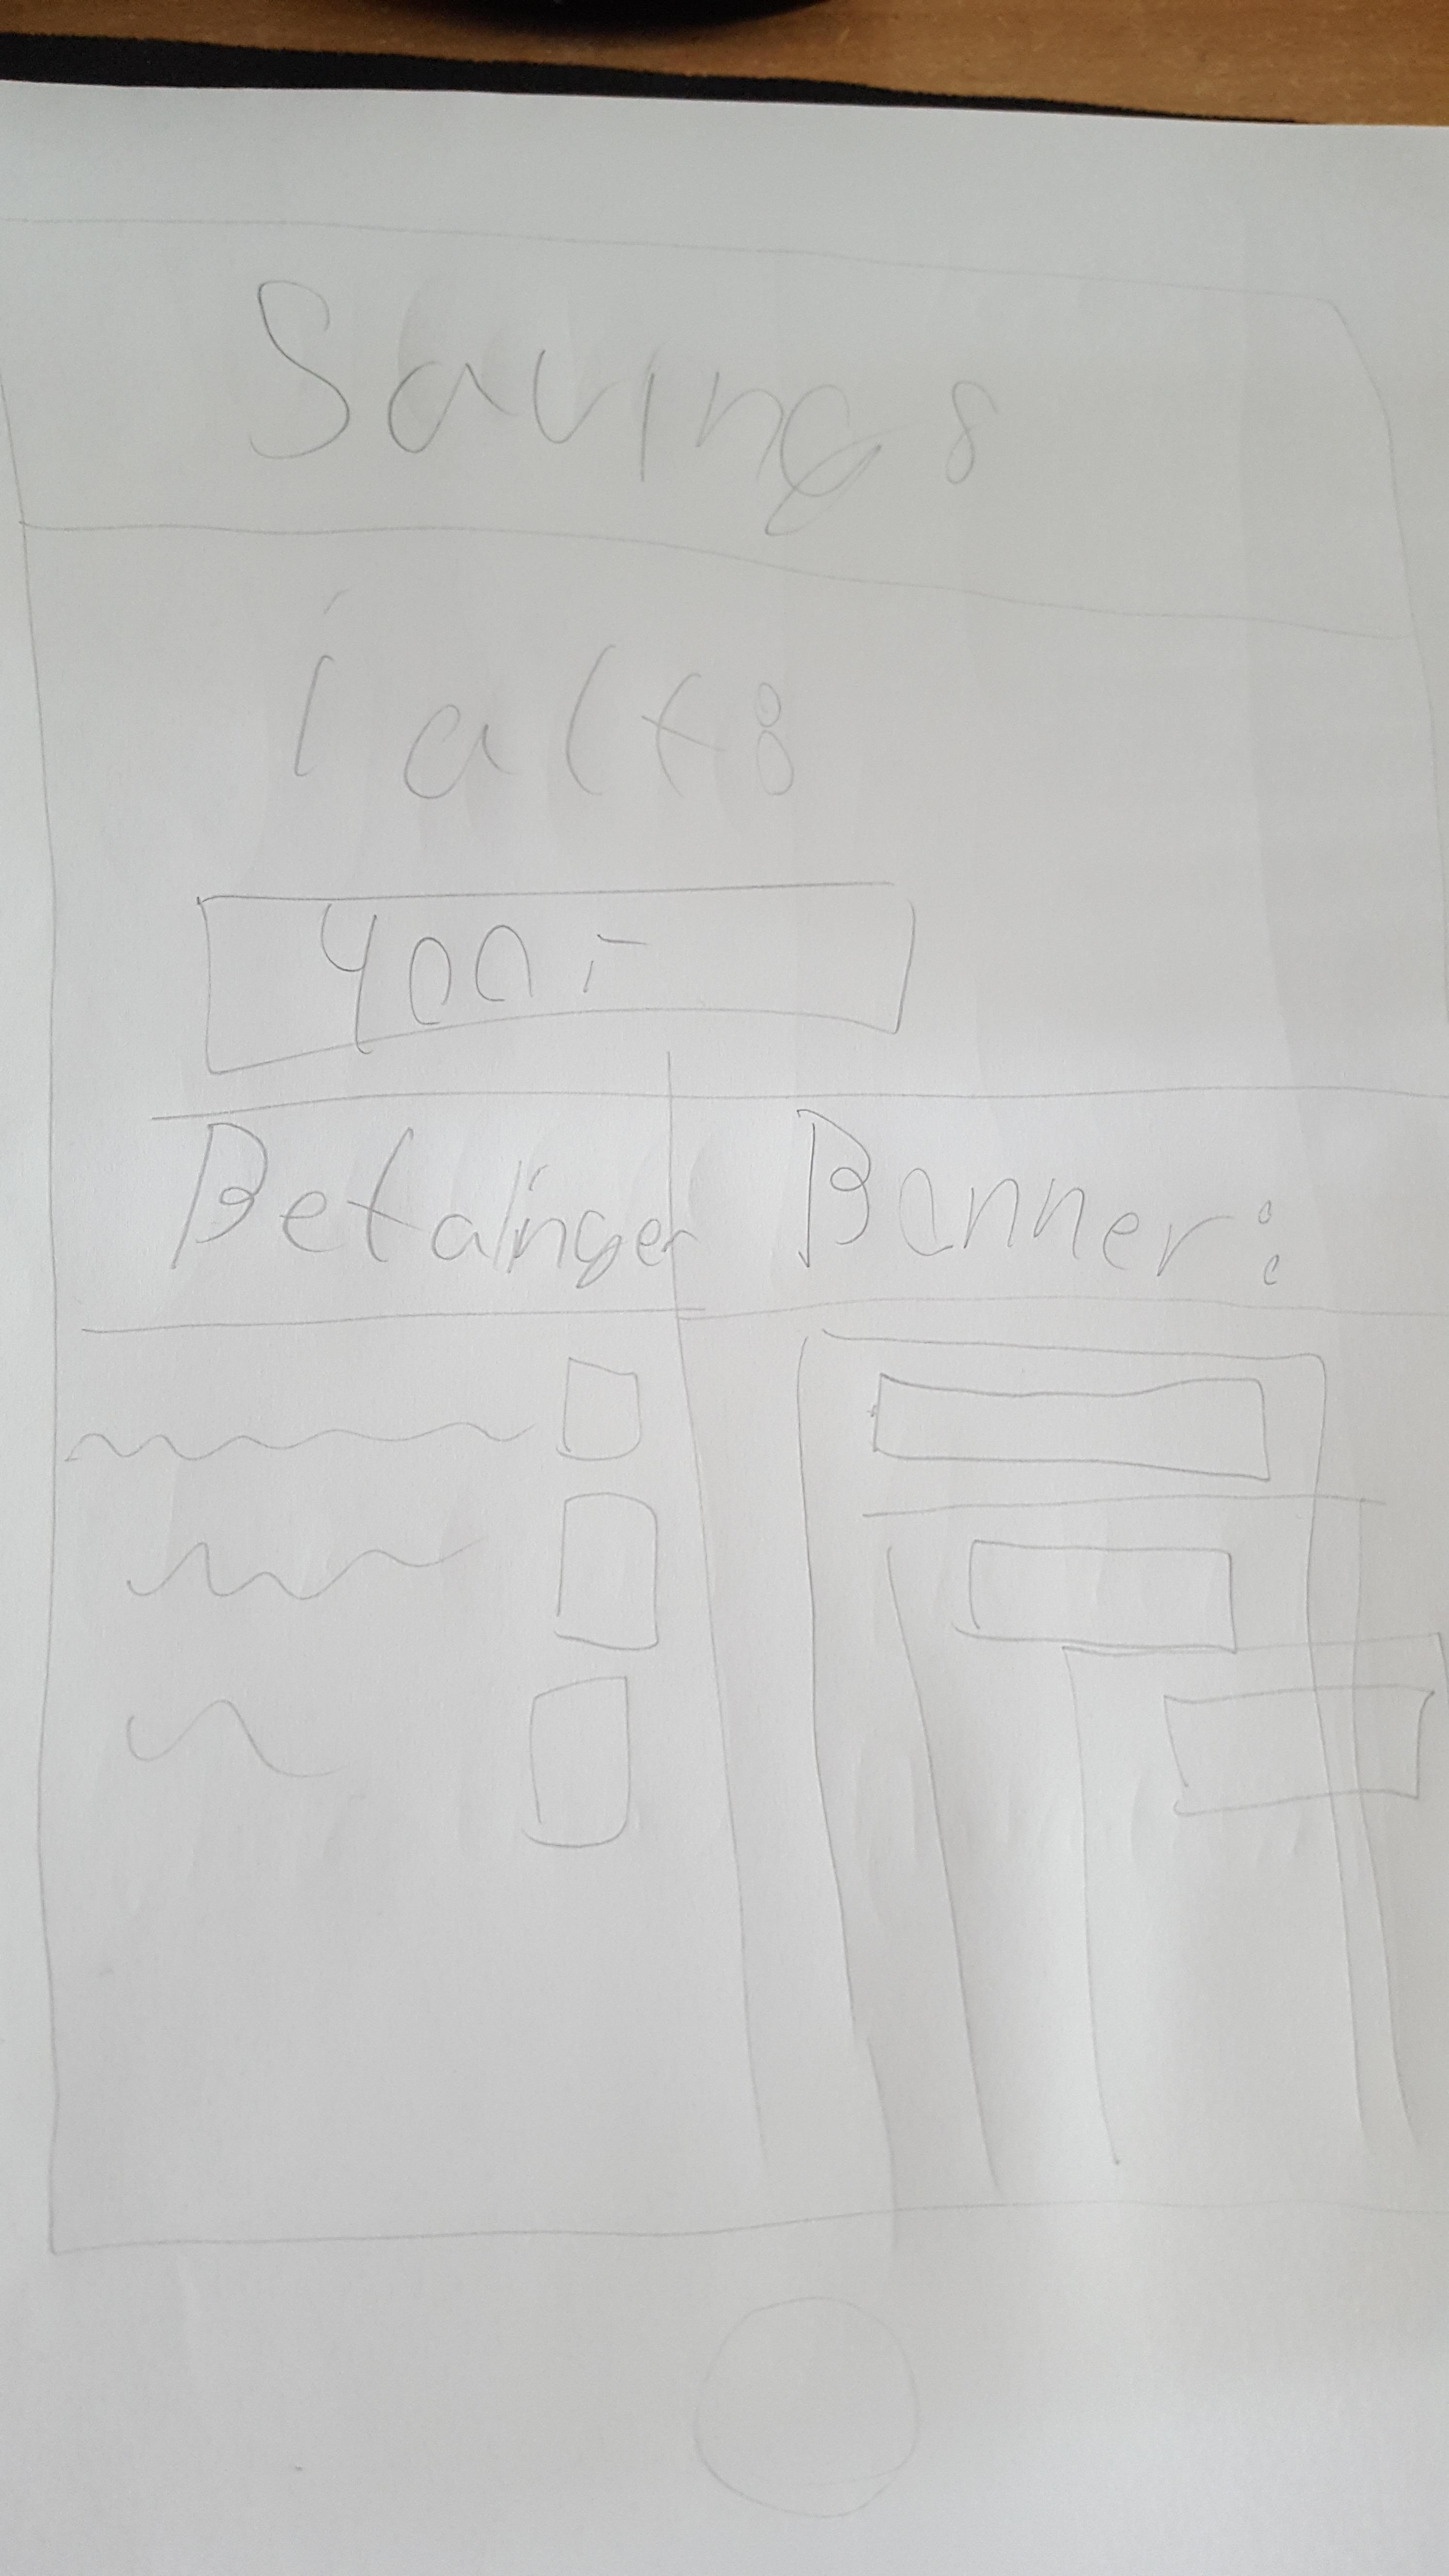 Savings
i alt:
400,-
Betalinger
Banner: